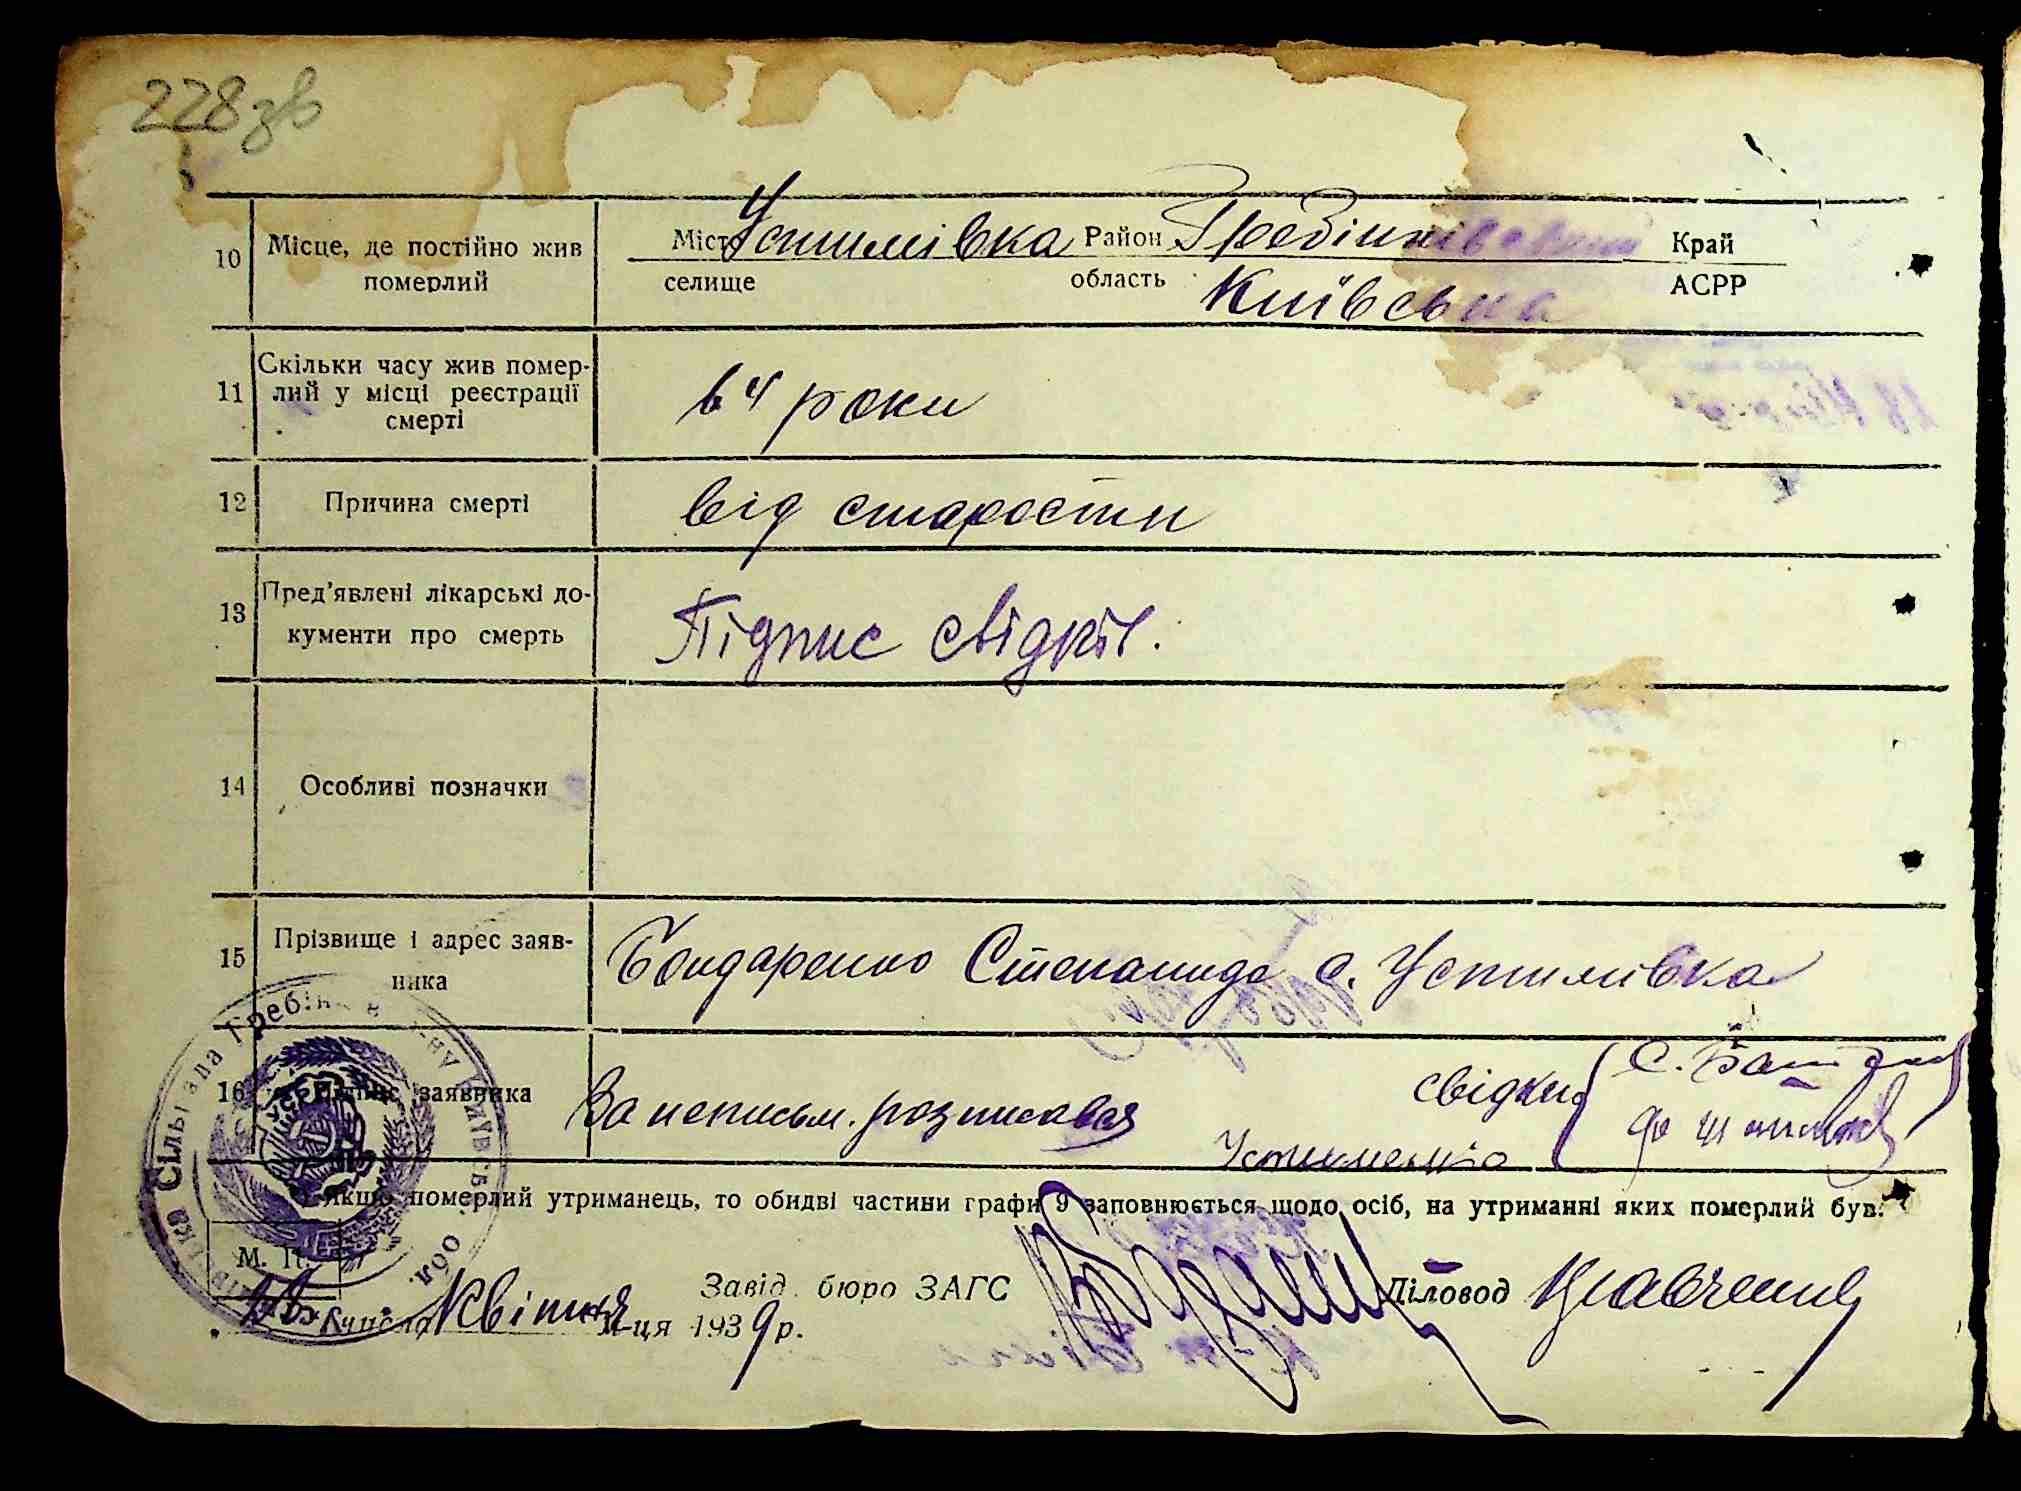 228зв
10 Місце, де постійно жив померлий
Місто Устимівка Район Гребінківський Край
селище область Київська АСРР
11 Скільки часу жив помер-
лий у місці реєстрації
смерті
64 роки
12 Причина смерті від старости
13 Пред'явлені лікарські до-
кументи про смерть
Підпис свідків.
14 Особливі позначки
15 Прізвище і адрес заяв-
ника
Бондаренко Степанида с. Устимівка
16 Підпис заявника За неписьм. розписався
Устименко
свідки
С.
Якщо померлий утриманець, то обидві частини графи 9 заповнюється щодо осіб, на утриманні яких померлий був.
М. П.
числа Квітня м-ця 1939 р.
Завід. бюро ЗАГС
Діловод
УСРР
Сільрада Гребінк обл.